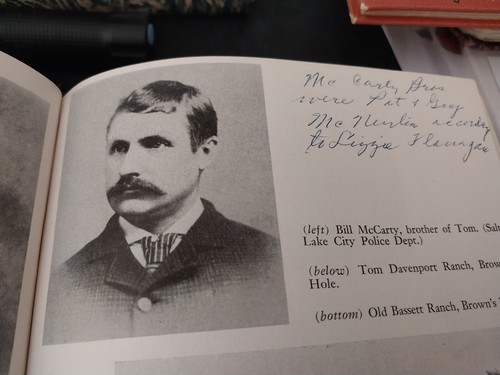 Mc Carty Bros
were Pat & Gray
Mc Nurlin according
to Lizzie Flanagan
(left) Bill McCarty, brother of Tom. (Salt
Lake City Police Dept.)
(below) Tom Davenport Ranch, Brow
Hole.
(bottom) Old Bassett Ranch, Brown's